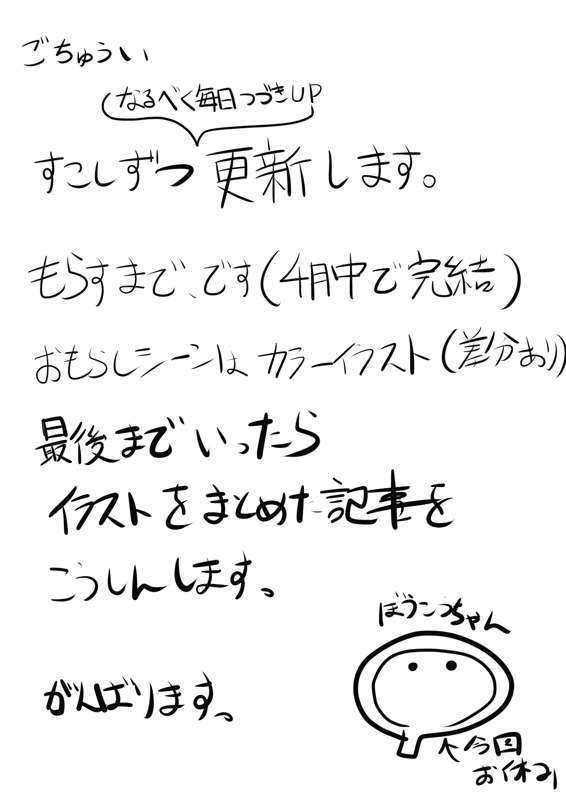 ごちゅうい
(なるべく毎日つづきUP
すこしずつ更新します。
もらすまで、です(4月中で完結)
おもらしシーンは カラーイラスト(差分あり)
最後までいったら
イラストをまとめた記事を
こうしんします。
ぼうこうちゃん
がんばります。
↑今回
お休み